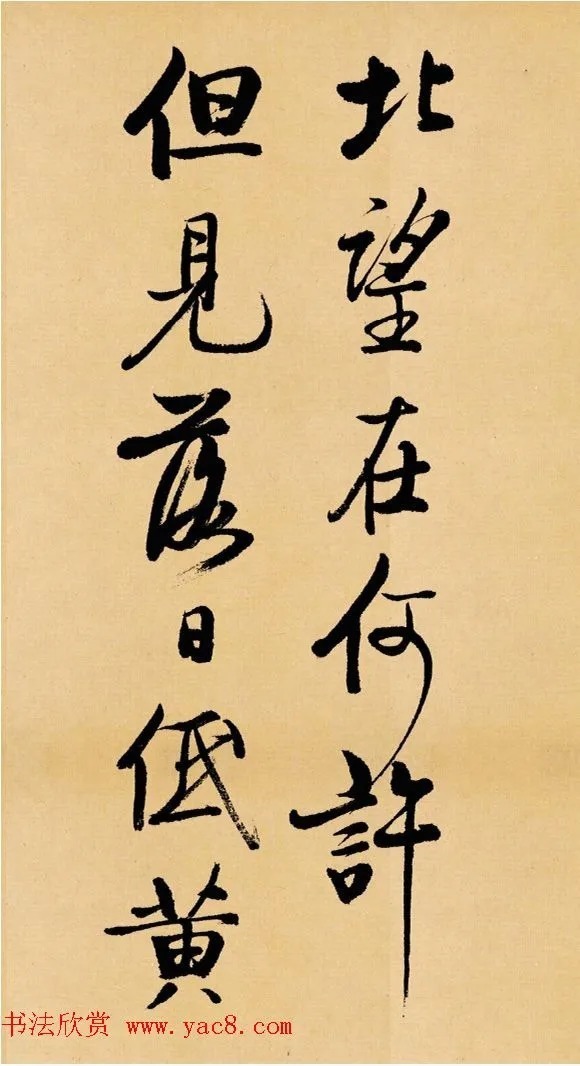 北望在何許
但見落日低黄
书法欣赏 www.yac8.com